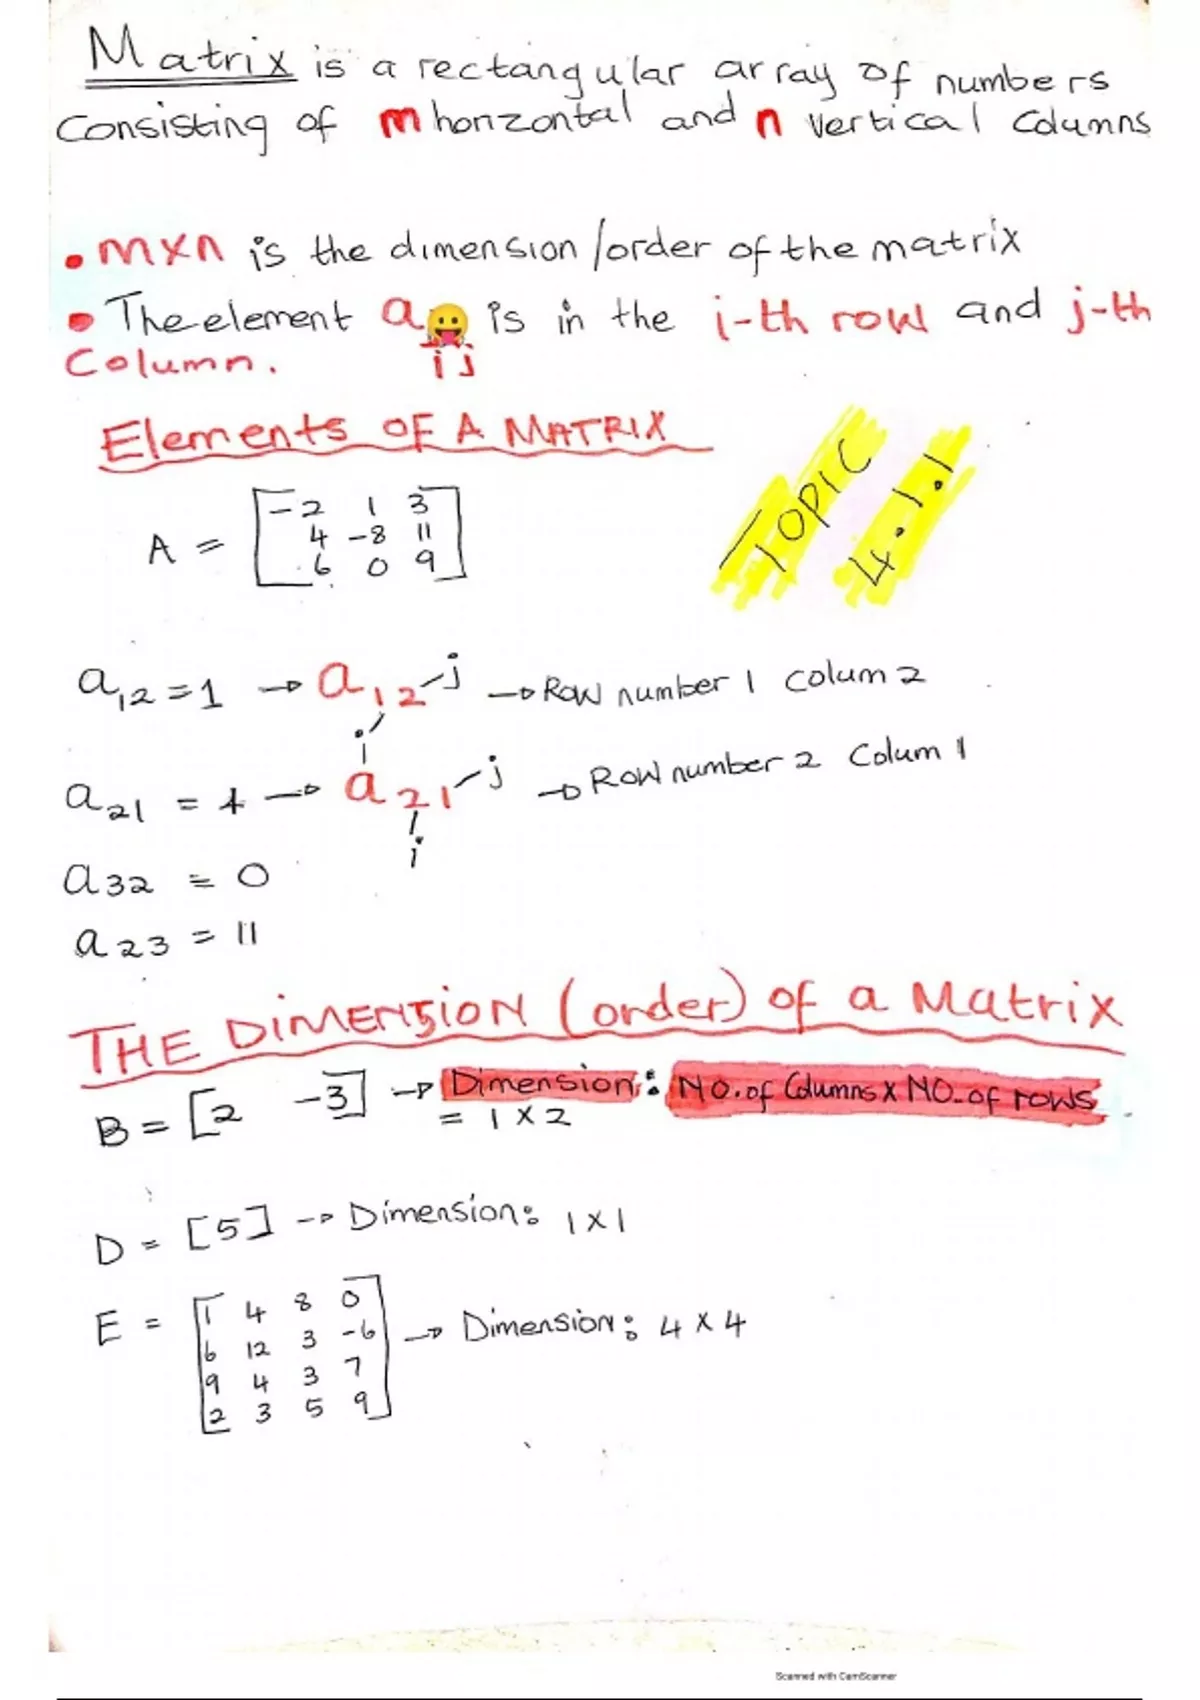 Matrix is a rectangular array of numbers
Consisting of m horizontal and n vertical Columns
• m×n is the dimension /order of the matrix
• The element a ij is in the i-th row and j-th
Column.
Elements OF A MATRIX
TOPIC
4.1.1
A = [-2 1 3
4 -8 11
6 0 9]
a12 = 1 → a12 j → Row number 1 Colum 2
i
a21 = 4 → a21 j → Row number 2 Colum 1
i
a32 = 0
a23 = 11
THE DIMENSION (order) of a Matrix
B = [2 -3] → Dimension: NO. of Columns X NO. of rows
= 1 X 2
D = [5] → Dimension: 1 X 1
E = [1 4 8 0
6 12 3 -6
9 4 3 7
2 3 5 9] → Dimension: 4 X 4
Scanned with CamScanner